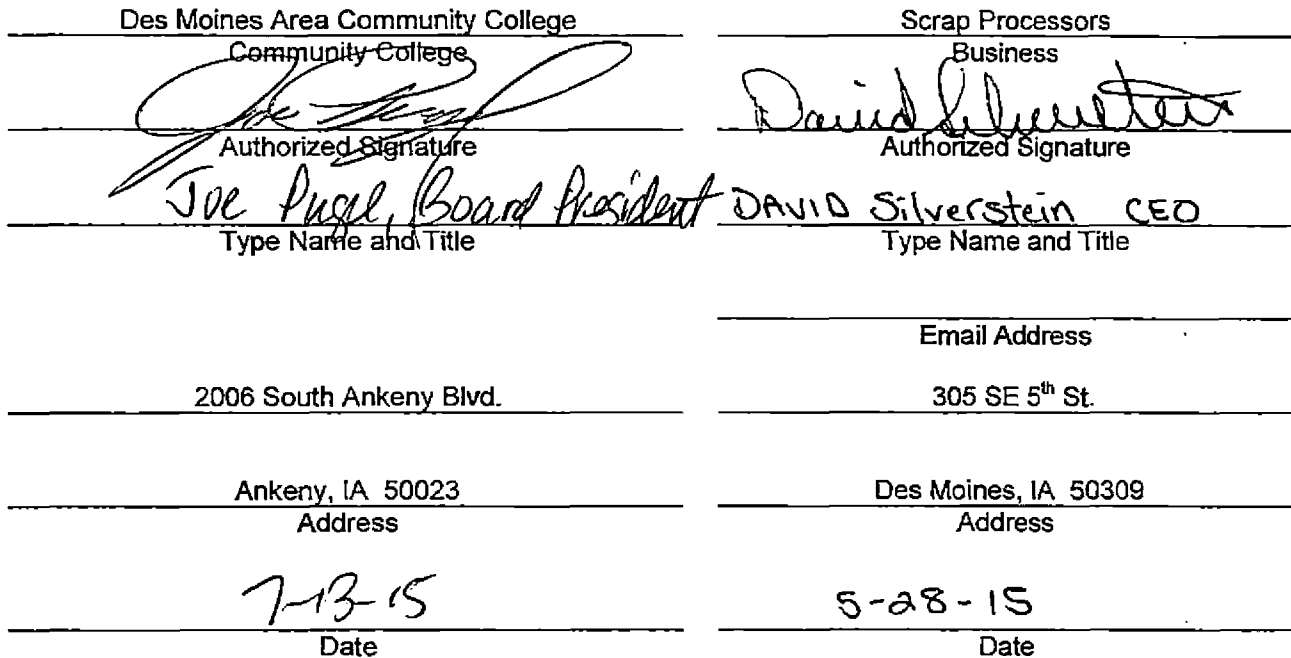 Des Moines Area Community College
Community College
Joe Pugel
Authorized Signature
Joe Pugel, Board President
Type Name and Title
2006 South Ankeny Blvd.
Ankeny, IA 50023
Address
7-13-15
Date
Scrap Processors
Business
David Silverstein
Authorized Signature
DAVID Silverstein CEO
Type Name and Title
Email Address
305 SE 5th St.
Des Moines, IA 50309
Address
5-28-15
Date